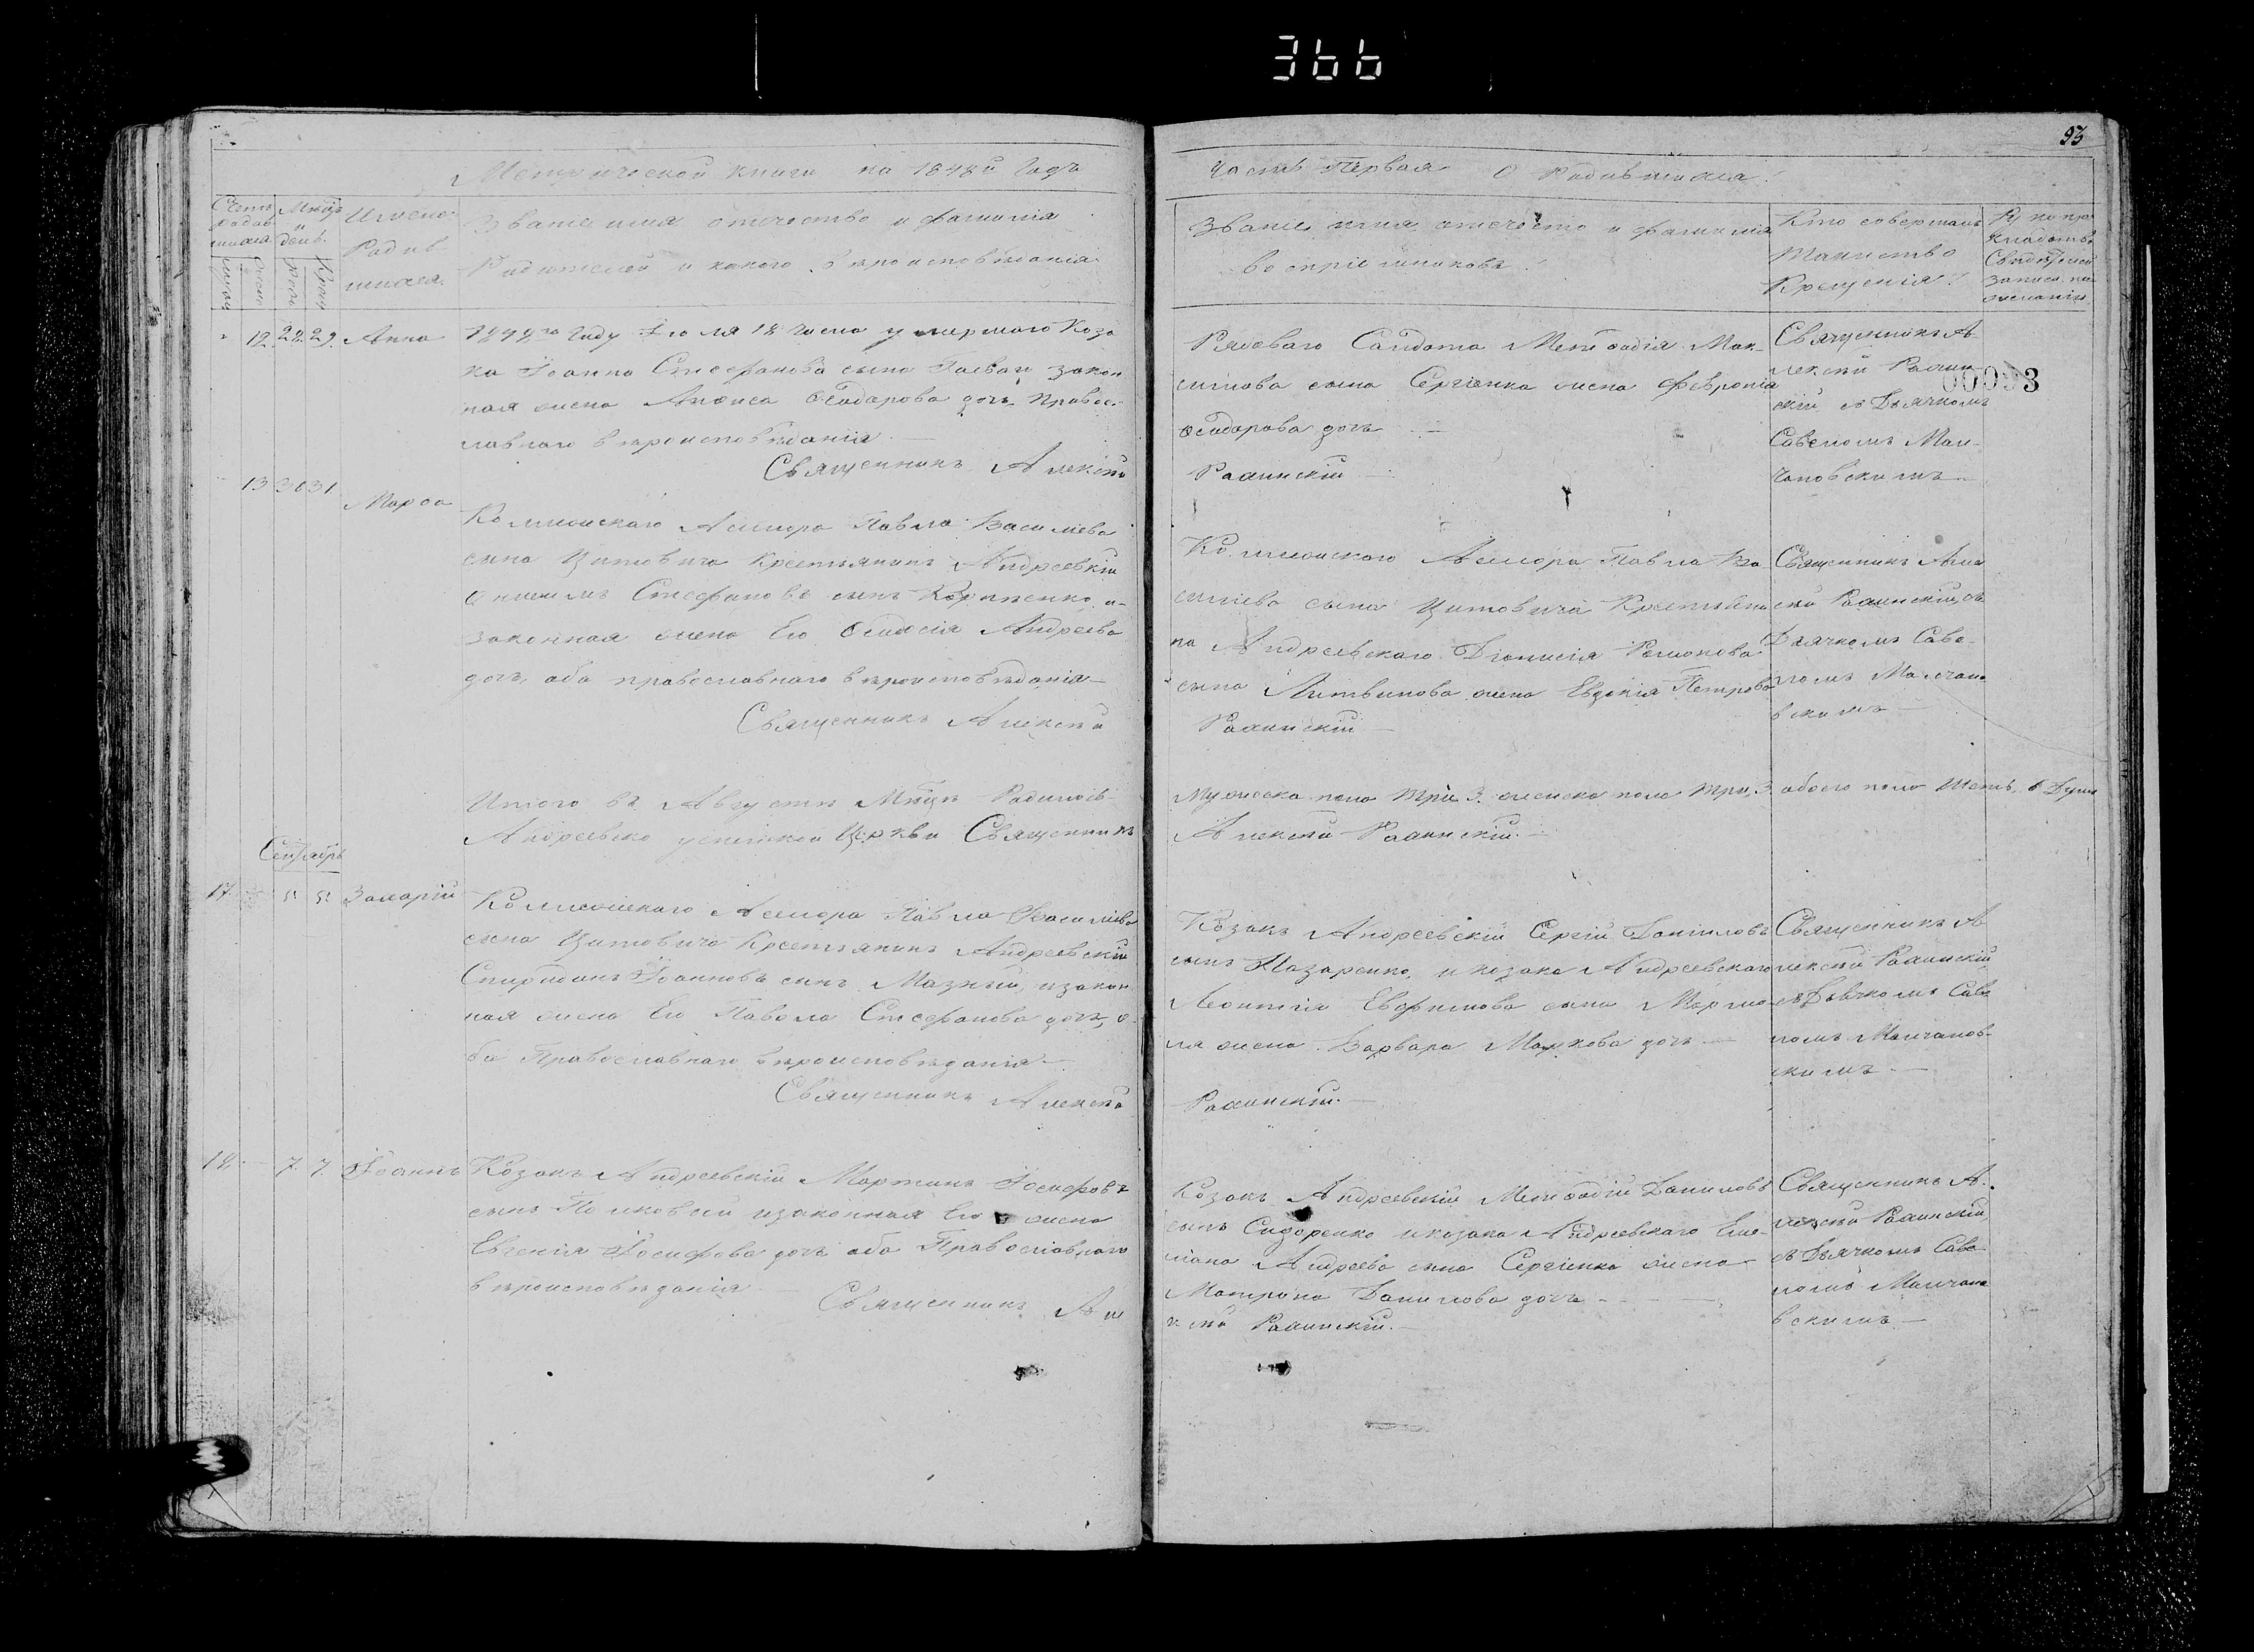 366
93
Метрической книги на 1848й Годъ
Часть Первая О Родившихся.
Счетъ родив шихся
Мѣсяцъ и день.
Имена Родив шихся.
Званіе имя отечество и фамилія
Родителей и какого вѣроисповѣданія.
Званіе имя отечество и фамилія
воспріемниковъ.
Кто совершалъ
Таинство
Крещенія.
12. 28. 29. Анна
1848го Году Іюля 18 числа умершаго Коза
ка Іоанна Стефанова сына законная
жена Ѳеодорова дочь Правос-
лавнаго вѣроисповѣданія
Священникъ Алексѣй
Рядоваго Солдата Меѳодія Мак-
симова сына Сергіенка жена Февронія
Ѳеодорова дочь
Священникъ А-
лексѣй
скій съ Дьячкомъ
Савеломъ Мол-
чановскимъ
00093
13 30 31 Марѳа
Павла Василіева
сына Цитовича Крестьянинъ Андреевскій
Стефановъ сынъ и
законная жена Его Ѳеодосія Андреева
дочь, оба православнаго вѣроисповѣданія
Священникъ Алексѣй
Павла Ва
силіева сына Цитовича Крестьяни
на Андреевскаго Діонисія
сына Литвинова жена Евдокія Петрова
Священникъ Алек
сѣй съ
Дьячкомъ Саве
ломъ Молчано
вскимъ
Итого въ Августѣ Мѣсяцѣ Родилось
Андреевско успенской Церкви Священникъ
Мужеска пола Три 3. женска пола Три, 3 обоего пола Шесть, 6 Душъ
Алексѣй
Сентябрь
17 5 5 Захарій
Павла Василіева
сына Цитовича Крестьянинъ Андреевскій
Спиридонъ Іоанновъ сынъ Мазный, и закон
ная жена Его Павола Стефанова дочь, о-
ба Православнаго вѣроисповѣданія
Священникъ Алексѣй
Козакъ Андреевскій Сергій Даніиловъ
сынъ Назаренко, и козака Андреевскаго
Леонтія Евфимова сына
жена Варвара Маркова дочь
Священникъ А
лексѣй
съ Дьячкомъ Саве
ломъ Молчанов-
скимъ
18. 7. 7. Іоаннъ
Козакъ Андреевскій Мартинъ Іосифовъ
сынъ и законная Его жена
Евгенія Іосифова дочь оба Православнаго
вѣроисповѣданія
Священникъ Але
Козакъ Андреевскій Меѳодій Даниловъ
сынъ Сидоренко и козака Андреевскаго Еме
ліана Андреева сына Сергіенка жена
Матрона Данилова дочь
ксѣй
Священникъ А.
лексѣй
съ Дьячкомъ Саве
ломъ Молчано
вскимъ